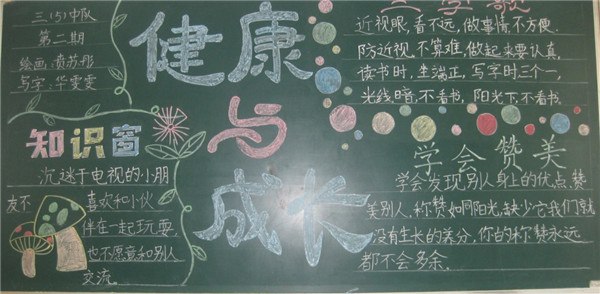 三.(5)中队
第二期
绘画:贲苏彤
写字:华雯雯
健康
与
成长
知识窗
沉迷于电视的小朋
友不喜欢和小伙
伴在一起玩耍,
也不愿意和别人
交流.
三字歌
近视眼,看不远,做事情,不方便.
防近视,不算难,做起来要认真,
读书时,坐端正,写字时三个一,
光线暗,不看书,阳光下,不看书.
学会赞美
学会发现别人身上的优点,赞
美别人,称赞如同阳光,缺少它我们就
没有生长的养分,你的称赞永远
都不会多余.